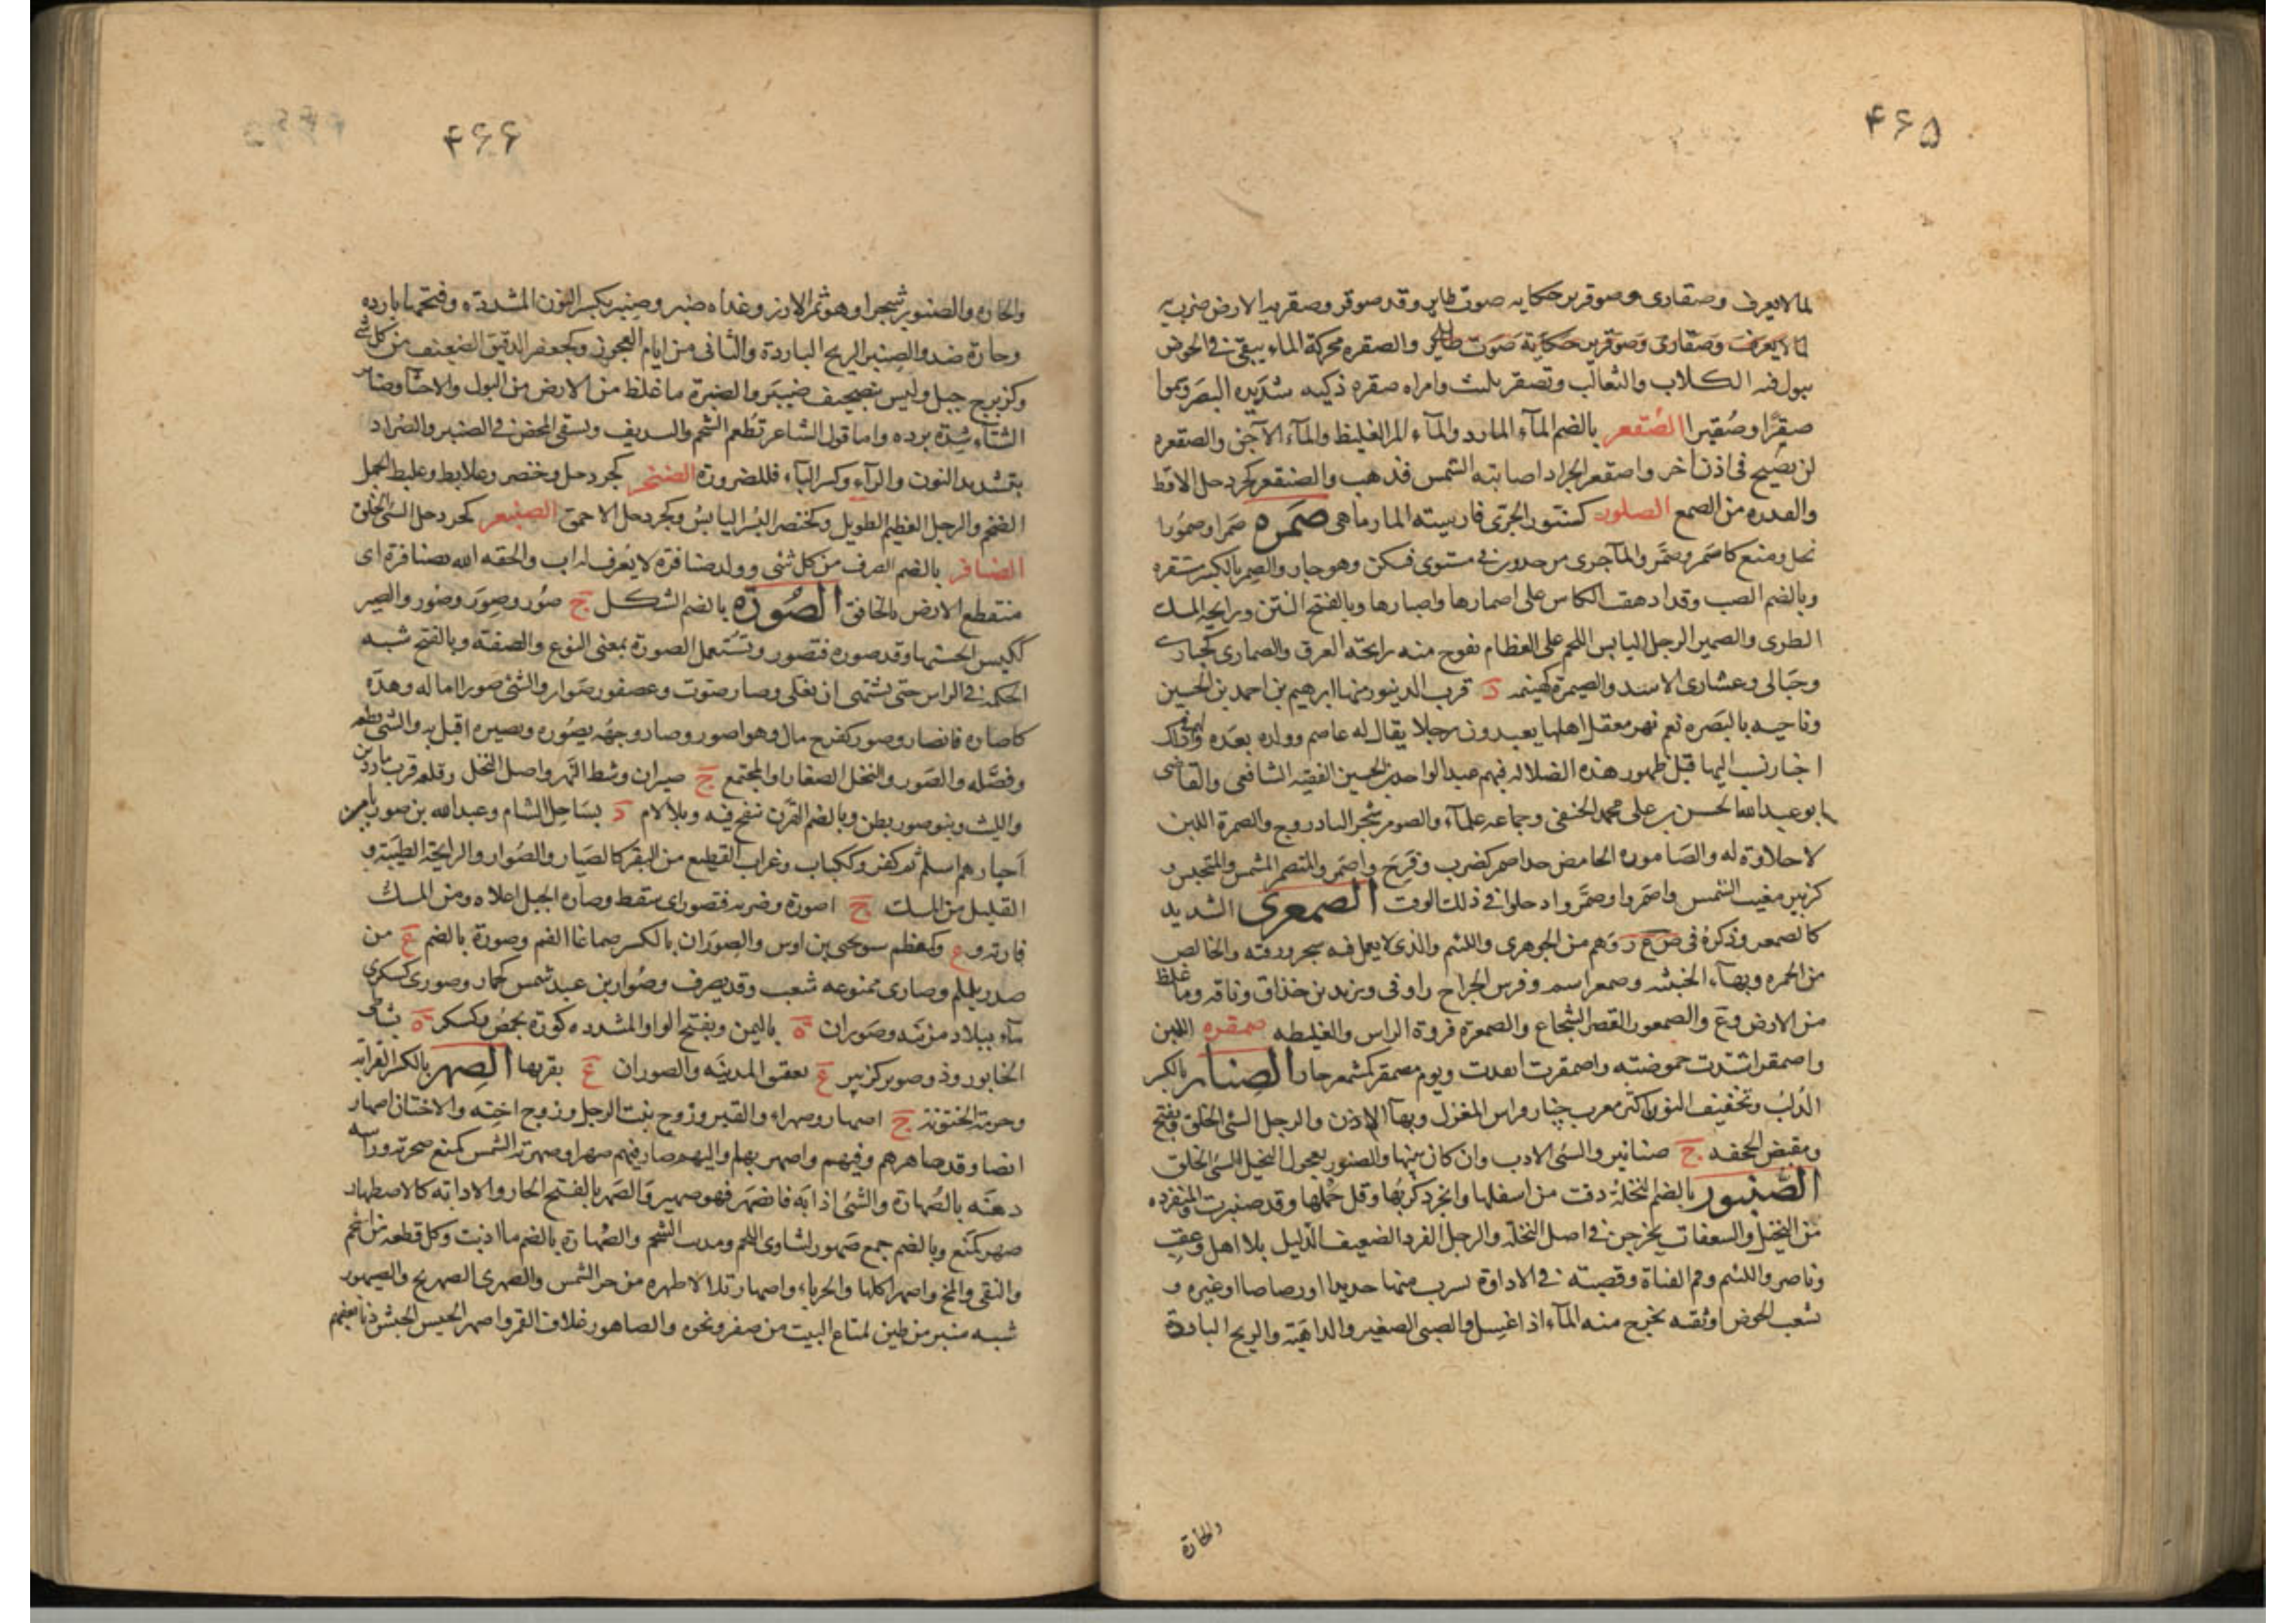 ۴۶۵
لما لا يعرف وصقارى وصوقرير حكاية صوت طاير وقد صوقر وصقر به الارض ضرب به
لما لا يعرف وصقارى وصوقرير حكاية صوت طاير والصقره محركة الماء يبقى فى الحوض
يبول فيه الكلاب والثعالب وتصقر تلبث وامراه صقره ذكيه شديده البصر وسموا
صقرًا وصُقيرا الصُقعر بالضم المآء البارد والمآء المر الغليظ والمآء الآجن والصقعره
ان يصيح فى اذن آخر واصقعر الجراد اصابته الشمس فذهب والصنقعر كجردحل الاقط
والفدره من الصمغ الصلور كسنور الجرّى فارسيته المارماهى صَمَره صَمرا وصمُورا
بخل ومنع كاصمر وصمَّر والمآ جرى من حدور فى مستوى فسكن وهو جار والصمر بالكسر مستقره
وبالضم الصب وقد ادهقت الكاس على اصمارها واصبارها وبالفتح النتن ورايحة المسك
الطرى والصمير الرجل اليابس اللحم على العظام تفوح منه رايحة العرق والصمارى كحبارى
وحبالى وعشارى الاست والصيمرة كهينمه د قرب الدينور منها ابرهيم بن احمد بن الحسين
وناحيه بالبصره بفم نهر معقل اهلها يعبدون رجلا يقال له عاصم وولده بعده
اخبار نسب اليها قبل ظهور هذه الضلاله فيهم عبد الواحد بن الحسين الفقيه الشافعى والقاضى
ابو عبد الله الحسن بن على محمد الحنفى وجماعه علمآء والصومر شجر البادروج والصمرة اللبن
لا حلاوة له والصامورة الحامض جدا صمر كضرب وفرح واصمر والمتصمر المتشمس والمتحبس و
كزبير مغيب الشمس واصمروا وصمَّروا دخلوا فى ذلك الوقت الصمعرى الشديد
كالصمعر وذكره فى ص ع ر وهم من الجوهرى واللئيم والذى لا يعمل فيه سحر ورقيه والخالص
من الحمره وبهآء الخبيثه وصمعر اسم وفرس الجراح بن اوفى ويزيد بن خذاق وناقه وما غلظ
من الارض وع والصمعور القصير الشجاع والصمعرة فروة الراس والغليظه صمقره اللبن
واصمقر اشتدت حموضته واصمقرت اتقدت ويوم مصمقر كمشمعر حار الصِنار بالكسر
الدُلب وتخفيف النون اكثر معرب چنار وراس المغزل وبهآ الاذن والرجل السئ الخلق ويفتح
ومقبض الحجفه ج صنانير والسئ الادب وان كان نبيها والصنور كعجول البخيل السئ الخلق
الصُنبور بالضم النخلة دقت من اسفلها وانجرد كربها وقل حملها وقد صنبرت والمنفرده
من النخيل والسعفات يخرجن فى اصل النخلة والرجل الفرد الضعيف الذليل بلا اهل وعقب
وناصر واللئيم وفم القناة وقصبته فى الاداوة يشرب منها حديدا او رصاصا او غيره و
مثعب الحوض او ثقبه يخرج منه المآء اذا غسل والصبى الصغير والداهية والريح الباردة
والحارة
۴۶۶
والحاره والصنوبر شجر او هو ثمر الارز وغداه صنبر وصِنبِر بكسر النون المشدده وفتحها بارده
وحارة ضد والصِنبر الريح الباردة والثانى من ايام العجوز وكجعفر الدقيق الضعيف من كل شئ
وكزبرج جبل وليس بتصحيف ضيبر والصنبرة ما غلظ من الارض من البول والاخثا وصنابر
الشتاء شدة برده واما قول الشاعر نُطعم الشحم والسديف ونسقى المحض فى الصنبر والصُراد
بتشديد النون والرآء وكسر البآء فللضرورة الصنخر كجردحل وخنصر وعلابط وعلبط الجمل
الضخم والرجل العظيم الطويل وكخنصر البُسر اليابسُ وكجردحل الاحمق الصنبعر كجردحل السئ الخلق
الصنافر بالضم الصرف من كل شئ وولد صنافرة لا يُعرف له اب والحقه الله بصنافرة اى
منقطع الارض بالخافق الصُورَة بالضم الشكل ج صُور وصِوَر وصُور والصير
ككيس الحسنها وقد صوره فتصور وتستعمل الصورة بمعنى النوع والصفته وبالفتح شبه
الحكه فى الراس حتى يشتهى ان يفلى وصار صوّت وعصفور صَوار والشئ صورا اماله وهده
كاصاره فانصار وصور كفرح مال وهو اصور وصار وجهه يصُوره ويصيره اقبل به والشئ قطعه
وفصَّله والصَور والنخل الصغار او المجتمع ج صيران وشط النهر واصل النخل وقلعه قرب ماردين
والليث وبنو صور بطن وبالضم القرن ينفخ فيه وبلا لام د بساحل الشام وعبد الله بن صوريا من
أحبارهم اسلم ثم كفر وككتاب وغراب القطيع من البقر كالصيار والصُوار والرايحة الطيبة و
القليل من المسك ج اصورة وضربه فتصور اى سقط وصارة الجبل اعلاه ومن المسك
فارته وع وكمعظم سو يحيى بن اوس والصِوَران بالكسر صماغا الفم وصورة بالضم ع من
صدر يلملم وصارى ممنوعه شعب وقد يصرف وصُوار بن عبد شمس كحمار وصورى كسكرى
مآء ببلاد مزينه وصَوران ة باليمن وبفتح الواو المشدده كورة بحمص وكسكر ة بشاطى
الخابور وذو صوير كزبير ع بعقيق المدينه والصوران ع بقربها الصِهر بالكسر القرابة
وحرمة الختونة ج اصهار وصهراء والقبر وزوج بنت الرجل وزوج اخته والاختان اصهار
ايضا وقد صاهرهم وفيهم واصهر بهم واليهم صار فيهم صهرا وصهرته الشمس كمنع صحرته وراسه
دهنه بالصُهارة والشئ اذابه فانصهر فهو صهير والصَهر بالفتح الحار والاذابه كالاصطهار
صهر كمنع وبالضم جمع صَهور لشاوى اللحم ومذيب الشحم والصُهارة بالضم ما اذبت وكل قطعه من الشحم
والنقى والمخ واصهر اكلها والحرباء واصهار تلألا ظهره من حر الشمس والصهرى الصهريج والصيهور
شبه منبر من طين لمتاع البيت من صفر ونحوه والصاهور غلاف القمر واصهر الجيش للجيش دنا بعضهم